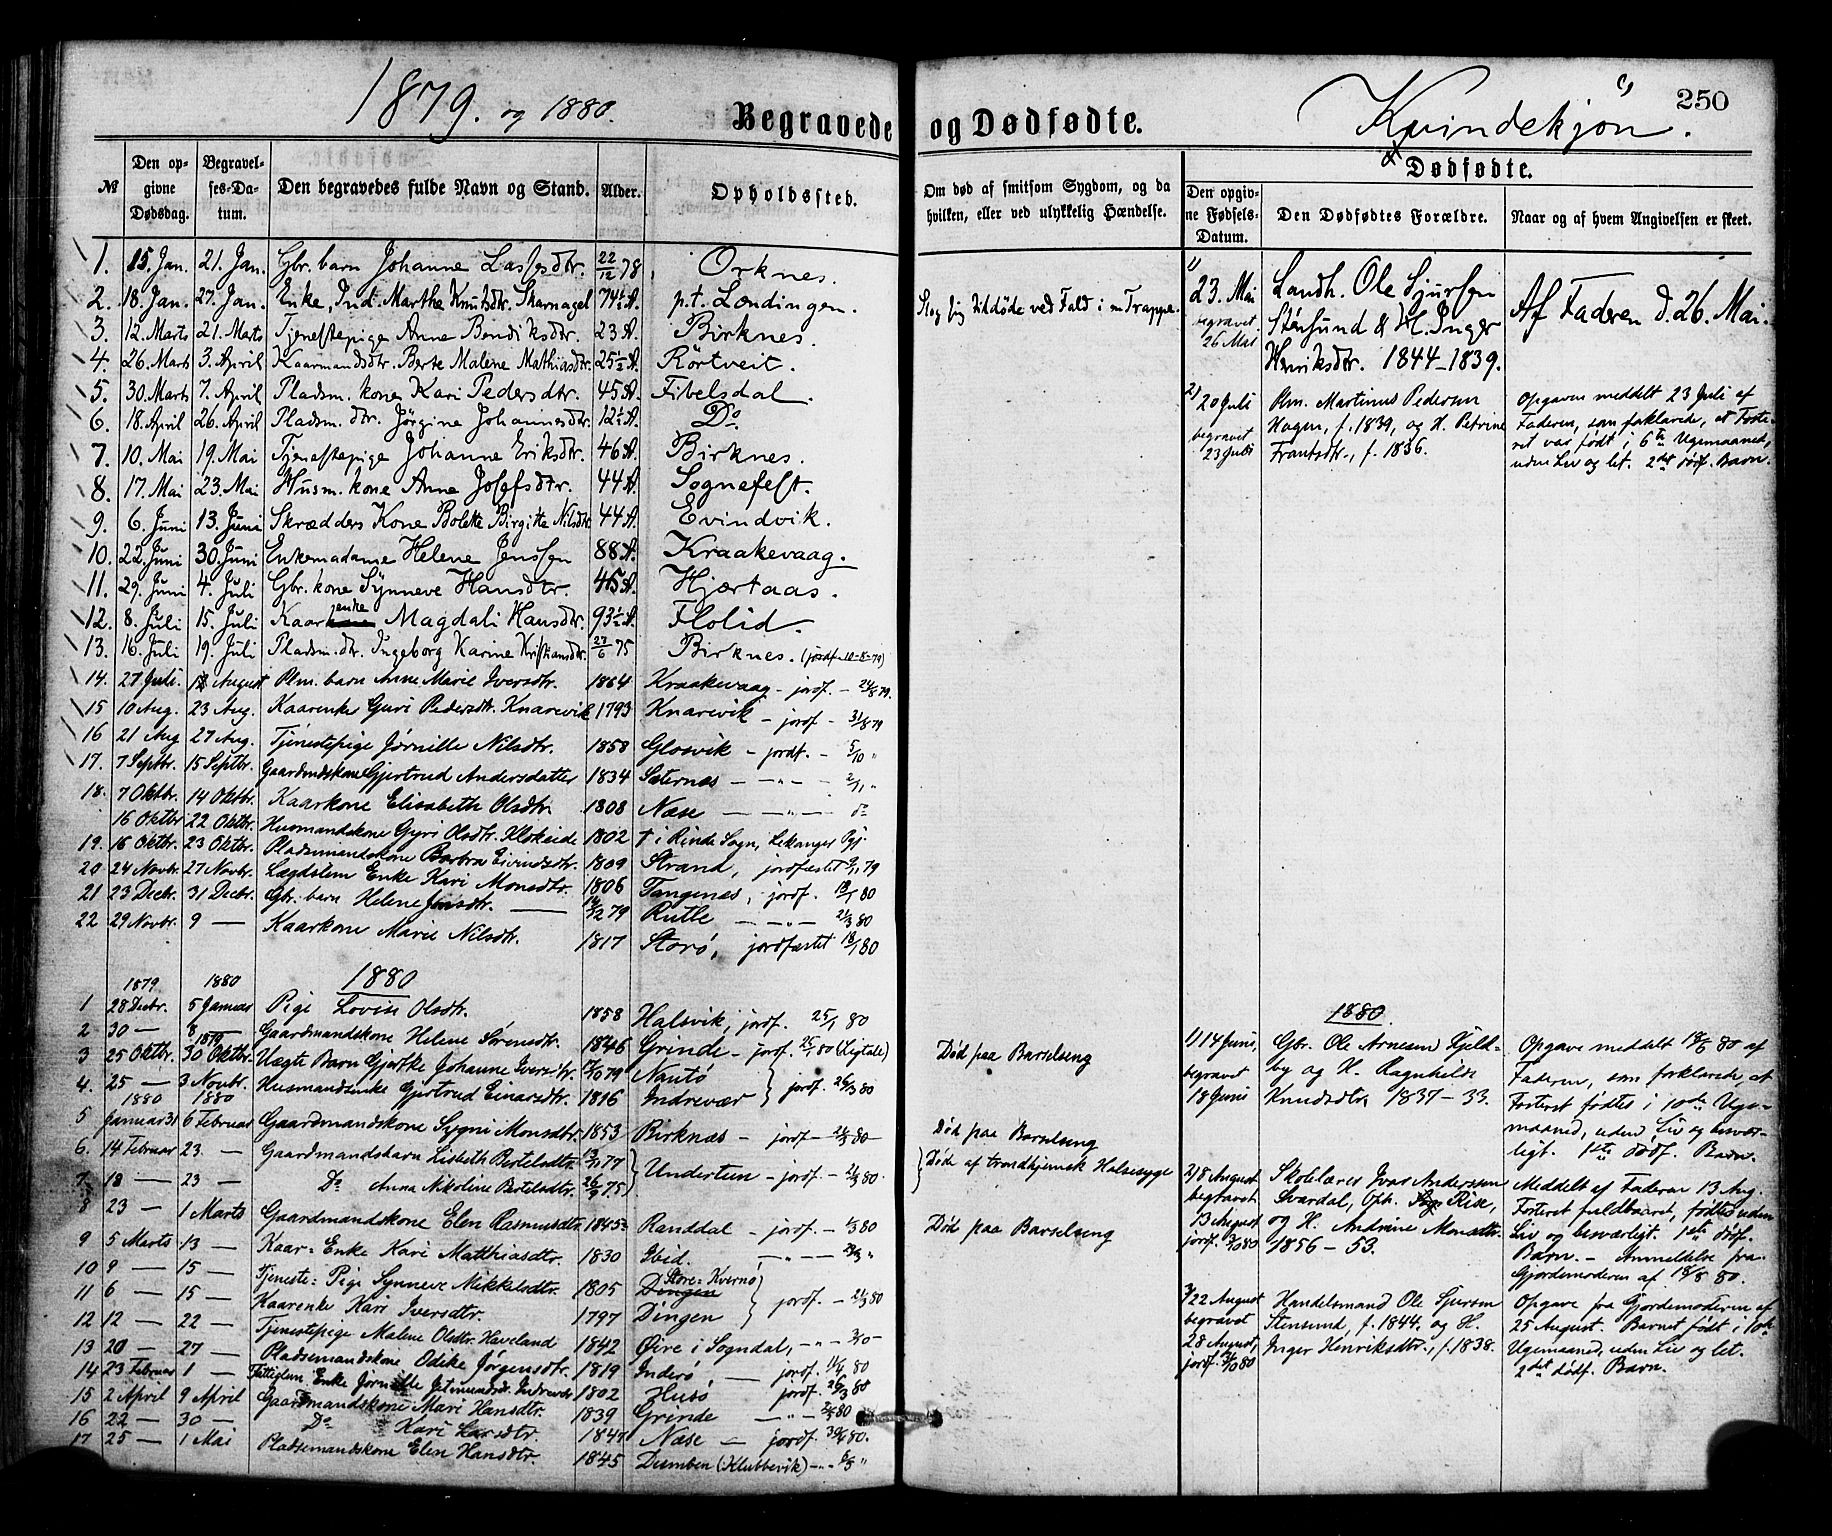 1879. og 1880.
Begravede og Dødfødte.
Kvindekjøn.
250
№ | Den opgivne Dødsdag. | Begravelses-Datum. | Den begravedes fulde Navn og Stand. | Alder. | Opholdssted. | Om død af smitsom Sygdom, og da hvilken, eller ved ulykkelig Hændelse.
1. 15. Jan. 21. Jan. Gbr. barn Johanne Lassesdtr. 22/12 78 Orknes.
2. 18. Jan. 27. Jan. Enke, Ind. Marthe Knutsdtr. Skarnagel 74½ A. p.t. Lendingen. Slog sig tildøde ved Fald i en Trappe.
3. 12. Marts 21. Marts Tjenestepige Anne Bendiksdtr. 23 A. Birknes.
4. 26. Marts 3. April Kaarmandsdtr. Berte Malene Mathiasdtr. 25½ A. Rörtveit.
5. 30. Marts 7. April Pladsm. kone Kari Pedersdtr. 45 A. Fivelsdal.
6. 18. April 26. April Pladsm. dtr. Jørgine Johannesdtr. 12½ A. Do.
7. 10. Mai 19. Mai Tjenestepige Johanne Eriksdtr. 46 A. Birknes.
8. 17. Mai 23. Mai Husm. kone Anne Josefsdtr. 44 A. Sognefest.
9. 6. Juni 13. Juni Skrædders Kone Bolette Birgitte Nilsdtr. 44 A. Evindvik.
10. 22. Juni 30. Juni Enkemadame Helene Jenssen 88 A. Kraakevaag.
11. 29. Juni 4. Juli Gbr. kone Synneve Hansdtr. 45 A. Hjærtaas.
12. 8. Juli 15. Juli Kaarenke Magdali Hansdtr. 93½ A. Flolid.
13. 16. Juli 19. Juli Pladsm. dtr. Ingeborg Karine Kristiansdtr. 27/6 75 Birknes. (jordf. 10-8-79)
14. 27 Juli. August Plm. barn Anne Marie Iversdtr. 1864 Kraakevaag - jordf. - 24/8 79.
15 10 Aug. 23 Aug. Kaarenke Guri Pedersdtr. Knarevik 1793 Knarevik - jordf - 31/8 79
16 21 Aug 27 Aug. Tjenestepige Jørnille Nilsdtr. 1858 Glosvik - jordf. - 5/10 "
17. 7 Septbr. 15 Septbr. Gaardmdskone Gjertrud Andersdatter 1834 Sæternæs - " -
18. 7 Oktbr. 14 Oktbr. Kaarkone Elisabeth Olsdtr. 1808 Næse - " - do
16 Oktbr 22 Oktbr. Husmandskone Gyri Olsdtr. 1802 † i Rinde Sogn, Lekanger Pgj.
19. 16 Oktbr. 23 Oktbr. Pladsmandskone Barbra Eivindsdtr. 1809 Strand, jordfæstet 79
20 24 Novbr. 27 Novbr. Lægdslem Enke Kari Monsdtr. 1806 Tangenæs, jordf. 80
21 23 Decbr. 31 Decbr. Gbr. barn Helene Jonsdtr. 79 Rutle - " - 21/3 80
22 29 Novbr. 9 — Kaarkone Marie Nilsdtr. 1817 Storø, jordfæstet 18/1 80
1879 1880 1880
1 28 Decbr. 5 Januar Pige Lovise Olsdtr. 1858 Halsvik, jordf. 25/1 80
2 30 — 8 — Gaardmandskone Helene Sørensdtr. 1846 Grinde - jordf. 25/1 80 (Ligtale) Død paa Barselseng
3 25 Oktbr. 1879 30 Oktbr. Uægte Barn Gjertke Johanne Iversdtr. 79 Nautø
4. 25 — 3 Novbr. Husmandsenke Gjertrud Einarsdtr. 1816 Indrevær } jordf. 80
1880 1880
5 Januar 31 6 Februar Gaardmandskone Sygni Monsdtr. 1853 Birknæs - jordf - 80 - Død paa Barselseng
6. 14 Februar 23 — Gaardmandsbarn Lisbeth Bertelsdtr. 77 Undertun - jordf. - 80. Døde af trondhjemsk Halssyge
7. 18 — 23 — Do Anna Nikoline Bertelsdtr. 75
8 23 — 1 Marts Gaardmandskone Elen Rasmusdtr. 1845 Randdal - jordf - 80 Død paa Barselseng
9 5 Marts 13 — Kaar-Enke Kari Matthiasdtr. 1830 Ibid. - " -
10 9 — 15 — Tjeneste-Pige Synneve Mikkelsdtr. 1805 Store-Kvernø
11 6 — 15 — Kaarenke Kari Iversdtr. 1797 Dingen } jordf - 21/3 80
12 12 — 22 — Tjenestepige Malene Olsdtr. Haveland 1842 Øire i Sogndal, - " -
13 20 — 27 — Pladsemandskone Odike Jørgensdtr. 1819 Inderø — jordf. 80
14 23 Februar 1 — Fattiglem Enke Jørnille 1802 Husø jordf. 80
15 2 April 9 April Gaardmandskone Mari Hansdtr. 1839 Grinde - " - 80
16 22 — 30 — Do Kari Larsdtr. 1847 Næse - jordf. 80.
17 25 — 1 Mai Pladsemandskone Elen Hansdtr. 1845 Dumben (Klubbevik) - " -
Dødfødte.
Den opgivne Fødsels-Datum. | Den Dødfødtes Forældre. | Naar og af hvem Angivelsen er skeet.
1) 23. Mai begravet 26 Mai
Landh. Ole Sjursen Stensund & H. Inger Henriksdtr. 1844-1839.
Af Faderen d. 26. Mai.
2) 20 Juli begravet 23 Juli
Plm. Martinus Pedersen Hagen, f. 1839, og H. Petrine Frantsdtr., f. 1836.
Opgaven meddelt 23 Juli af Faderen, som forklarede, at Fosteret var født i 6te Ugemaaned, uden Liv og let. 2det dødf. Barn.
1880.
1) 14 Juni, begravet 18 Juni
Gbr. Ole Arnesen Kjeldby og H. Ragnhilde Knudsdtr. 1837-33.
Opgave meddelt 18/6 80 af Faderen, som forklarede, at Fosteret fødtes i 10de Ugemaaned, uden Liv og besværligt. 1ste dødf. Barn.
2) 8 August begravet 13 August jordf. 80
Skolelærer Ivar Anderssen Svardal, Oph. Rise, og H. Andrine Monsdtr. 1856-53.
Meddelt af Faderen 13 Aug. Fosteret fuldbaaret, fødtes uden Liv og besværligt. 1ste dødf. Barn. - Anmeldelse fra Gjordemoderen af 18/8 80.
3) 22 August begravet 28 August, jordf. 80
Handelsmand Ole Sjursen Stensund, f. 1844, og H. Inger Henriksdtr., f. 1838.
Opgave fra Gjordemoderen af 25 August. Barnet født i 10de Ugemaaned, uden Liv og let. 2det dødf. Barn.